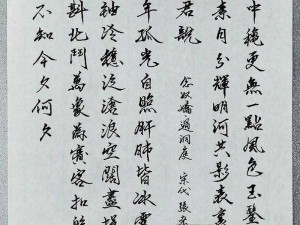 中穐更無一點風色玉鑒
素月分輝明河共影表裏
君說
念奴嬌 過洞庭 宋代 張孝
年孤光自照肝肺皆冰雪
袖冷穩泛滄浪空闊盡挹
斟北鬥萬象為賓客扣
不知今夕何夕